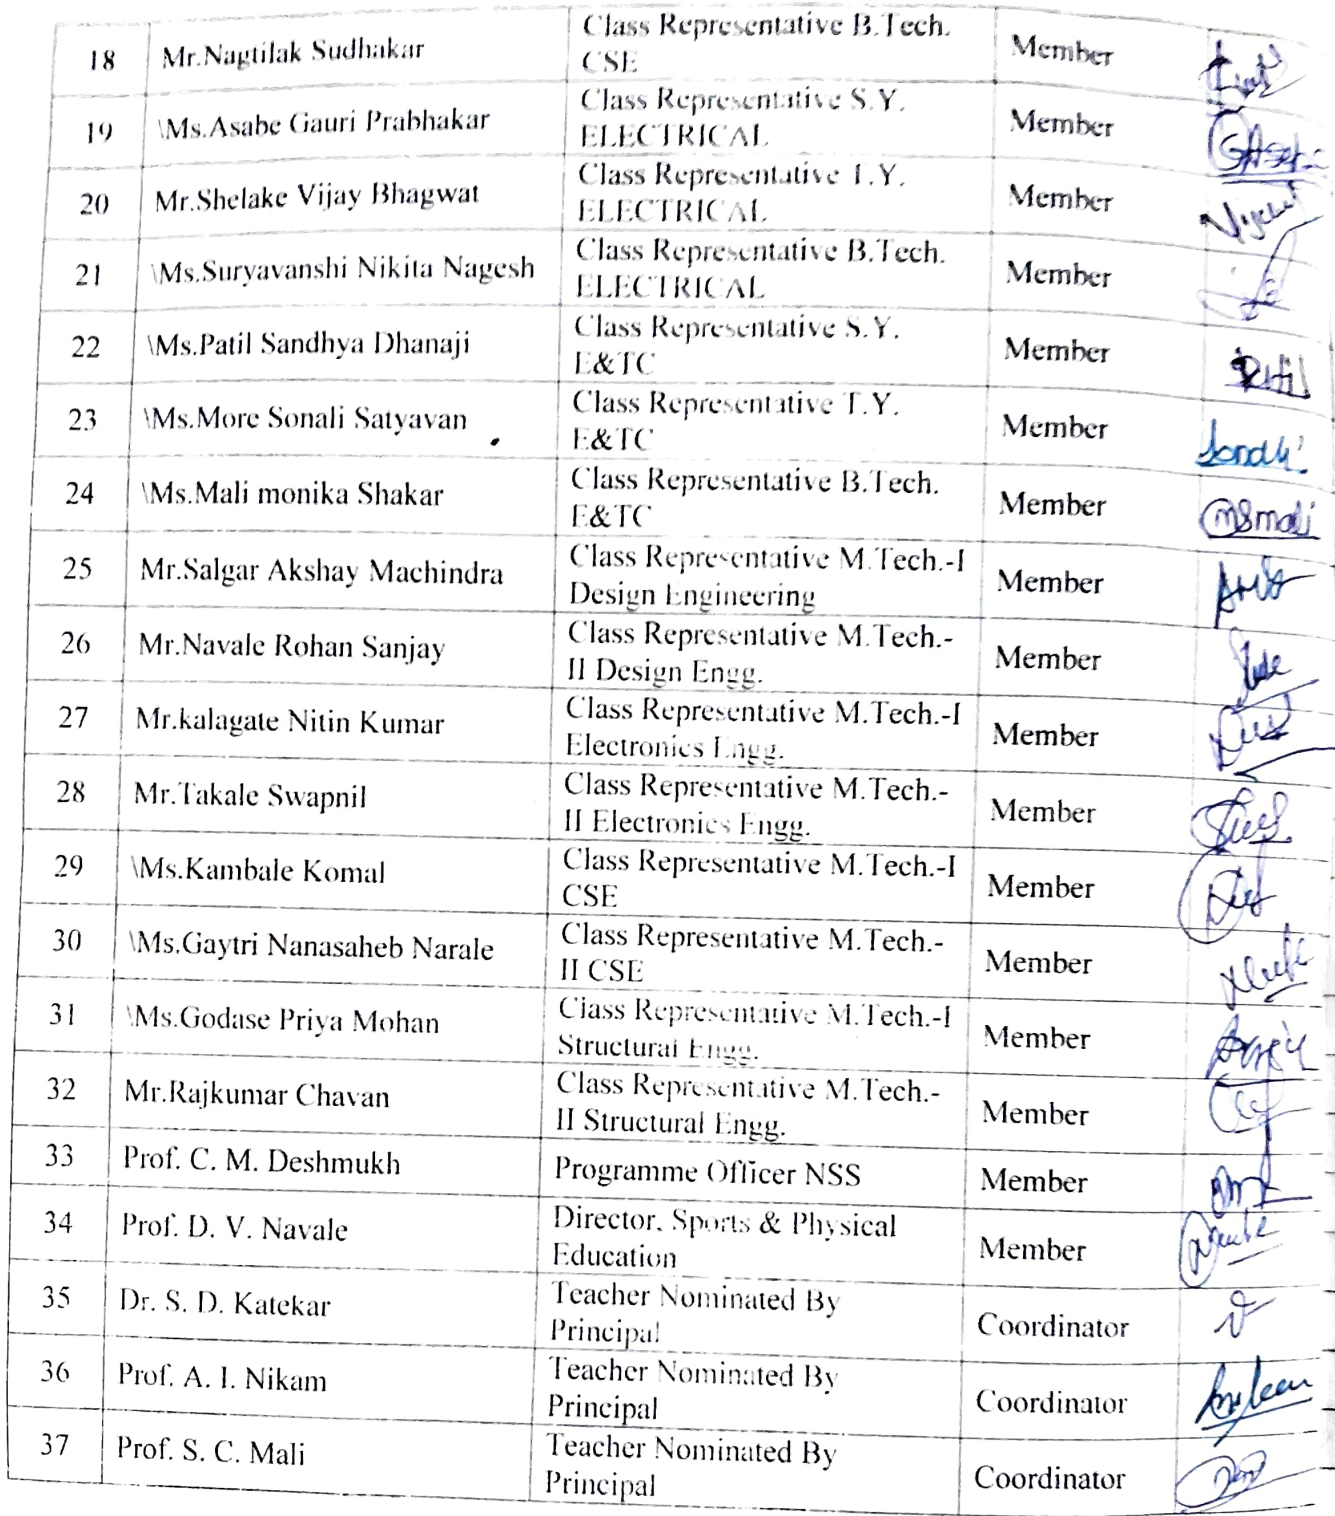 18 Mr.Nagtilak Sudhakar Class Representative B.Tech. Member
CSE
19 \Ms.Asabe Gauri Prabhakar Class Representative S.Y. Member
ELECTRICAL
20 Mr.Shelake Vijay Bhagwat Class Representative T.Y. Member
ELECTRICAL
21 \Ms.Suryavanshi Nikita Nagesh Class Representative B.Tech. Member
ELECTRICAL
22 \Ms.Patil Sandhya Dhanaji Class Representative S.Y. Member
E&TC
23 \Ms.More Sonali Satyavan Class Representative T.Y. Member
E&TC
24 \Ms.Mali monika Shakar Class Representative B.Tech. Member
E&TC MSmali
25 Mr.Salgar Akshay Machindra Class Representative M.Tech.-I Member
Design Engineering
26 Mr.Navale Rohan Sanjay Class Representative M.Tech.- Member
II Design Engg.
27 Mr.kalagate Nitin Kumar Class Representative M.Tech.-I Member
Electronics Engg.
28 Mr.Takale Swapnil Class Representative M.Tech.- Member
II Electronics Engg.
29 \Ms.Kambale Komal Class Representative M.Tech.-I Member
CSE
30 \Ms.Gaytri Nanasaheb Narale Class Representative M.Tech.- Member
II CSE
31 \Ms.Godase Priya Mohan Class Representative M.Tech.-I Member
Structural Engg.
32 Mr.Rajkumar Chavan Class Representative M.Tech.- Member
II Structural Engg.
33 Prof. C. M. Deshmukh Programme Officer NSS Member
34 Prof. D. V. Navale Director, Sports & Physical Member
Education
35 Dr. S. D. Katekar Teacher Nominated By Coordinator
Principal
36 Prof. A. I. Nikam Teacher Nominated By Coordinator
Principal
37 Prof. S. C. Mali Teacher Nominated By Coordinator
Principal